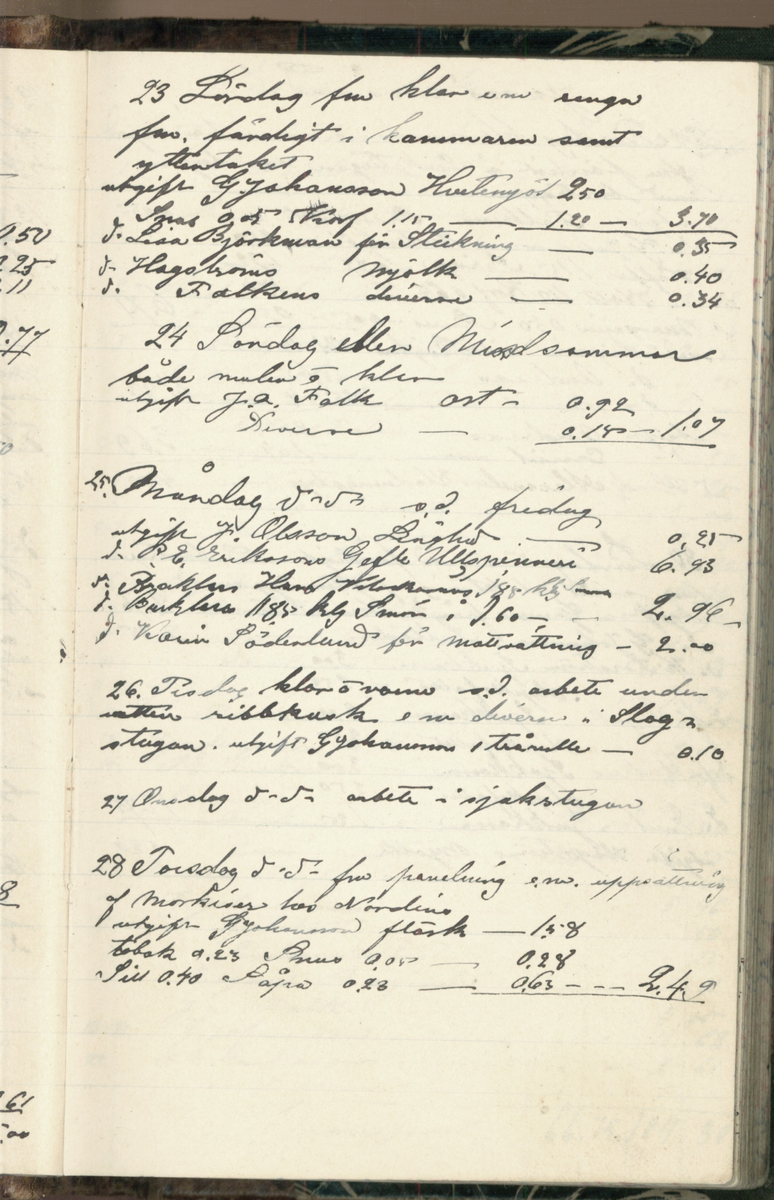 0.50
25
.11
0.77
8
61
.00
23 Lördag fm klar em regn
fm. färdigt i kammaren samt
yttertaket
utgift G Johansson Hvetemjöl 2.50
Snus 0.05 Korf 1.15 — 1.20 — 3.70
d. Lisa Björkman för Stickning — 0.35
d. Hagströms Mjölk — 0.40
d. Falkens diverse — 0.34
24 Söndag eller Midsommar
både mulen o klar
utgift J.A. Falk ost - 0.92
Diverse — 0.15 — 1.07
25. Måndag d-d- s.d. fredag
utgift J. Olsson — 0.25
d. P.E. Erikssons Gefle Ullspinneri 6.93
d. Hans 1,85 kg
d. 1,85 kg Smör i 1.60 - - 2.96 -
d. Karin Söderlund för mattvättning - 2.00
26. Tisdag klar o varm s.d. arbete under
em diverse i Slog-
stugan. utgift G Johansson 1 trårulle — 0.10
27 Onsdag d-d- arbete i sjukstugan
28 Torsdag d-d- fm panelning em. uppsättning
af Markiser hos Nordins
utgift G Johansson fläsk — 1.58
tobak 0.23 Snus 0.05 — 0.28
Sill 0.40 Såpa 0.23 — 0.63 - - - 2.49